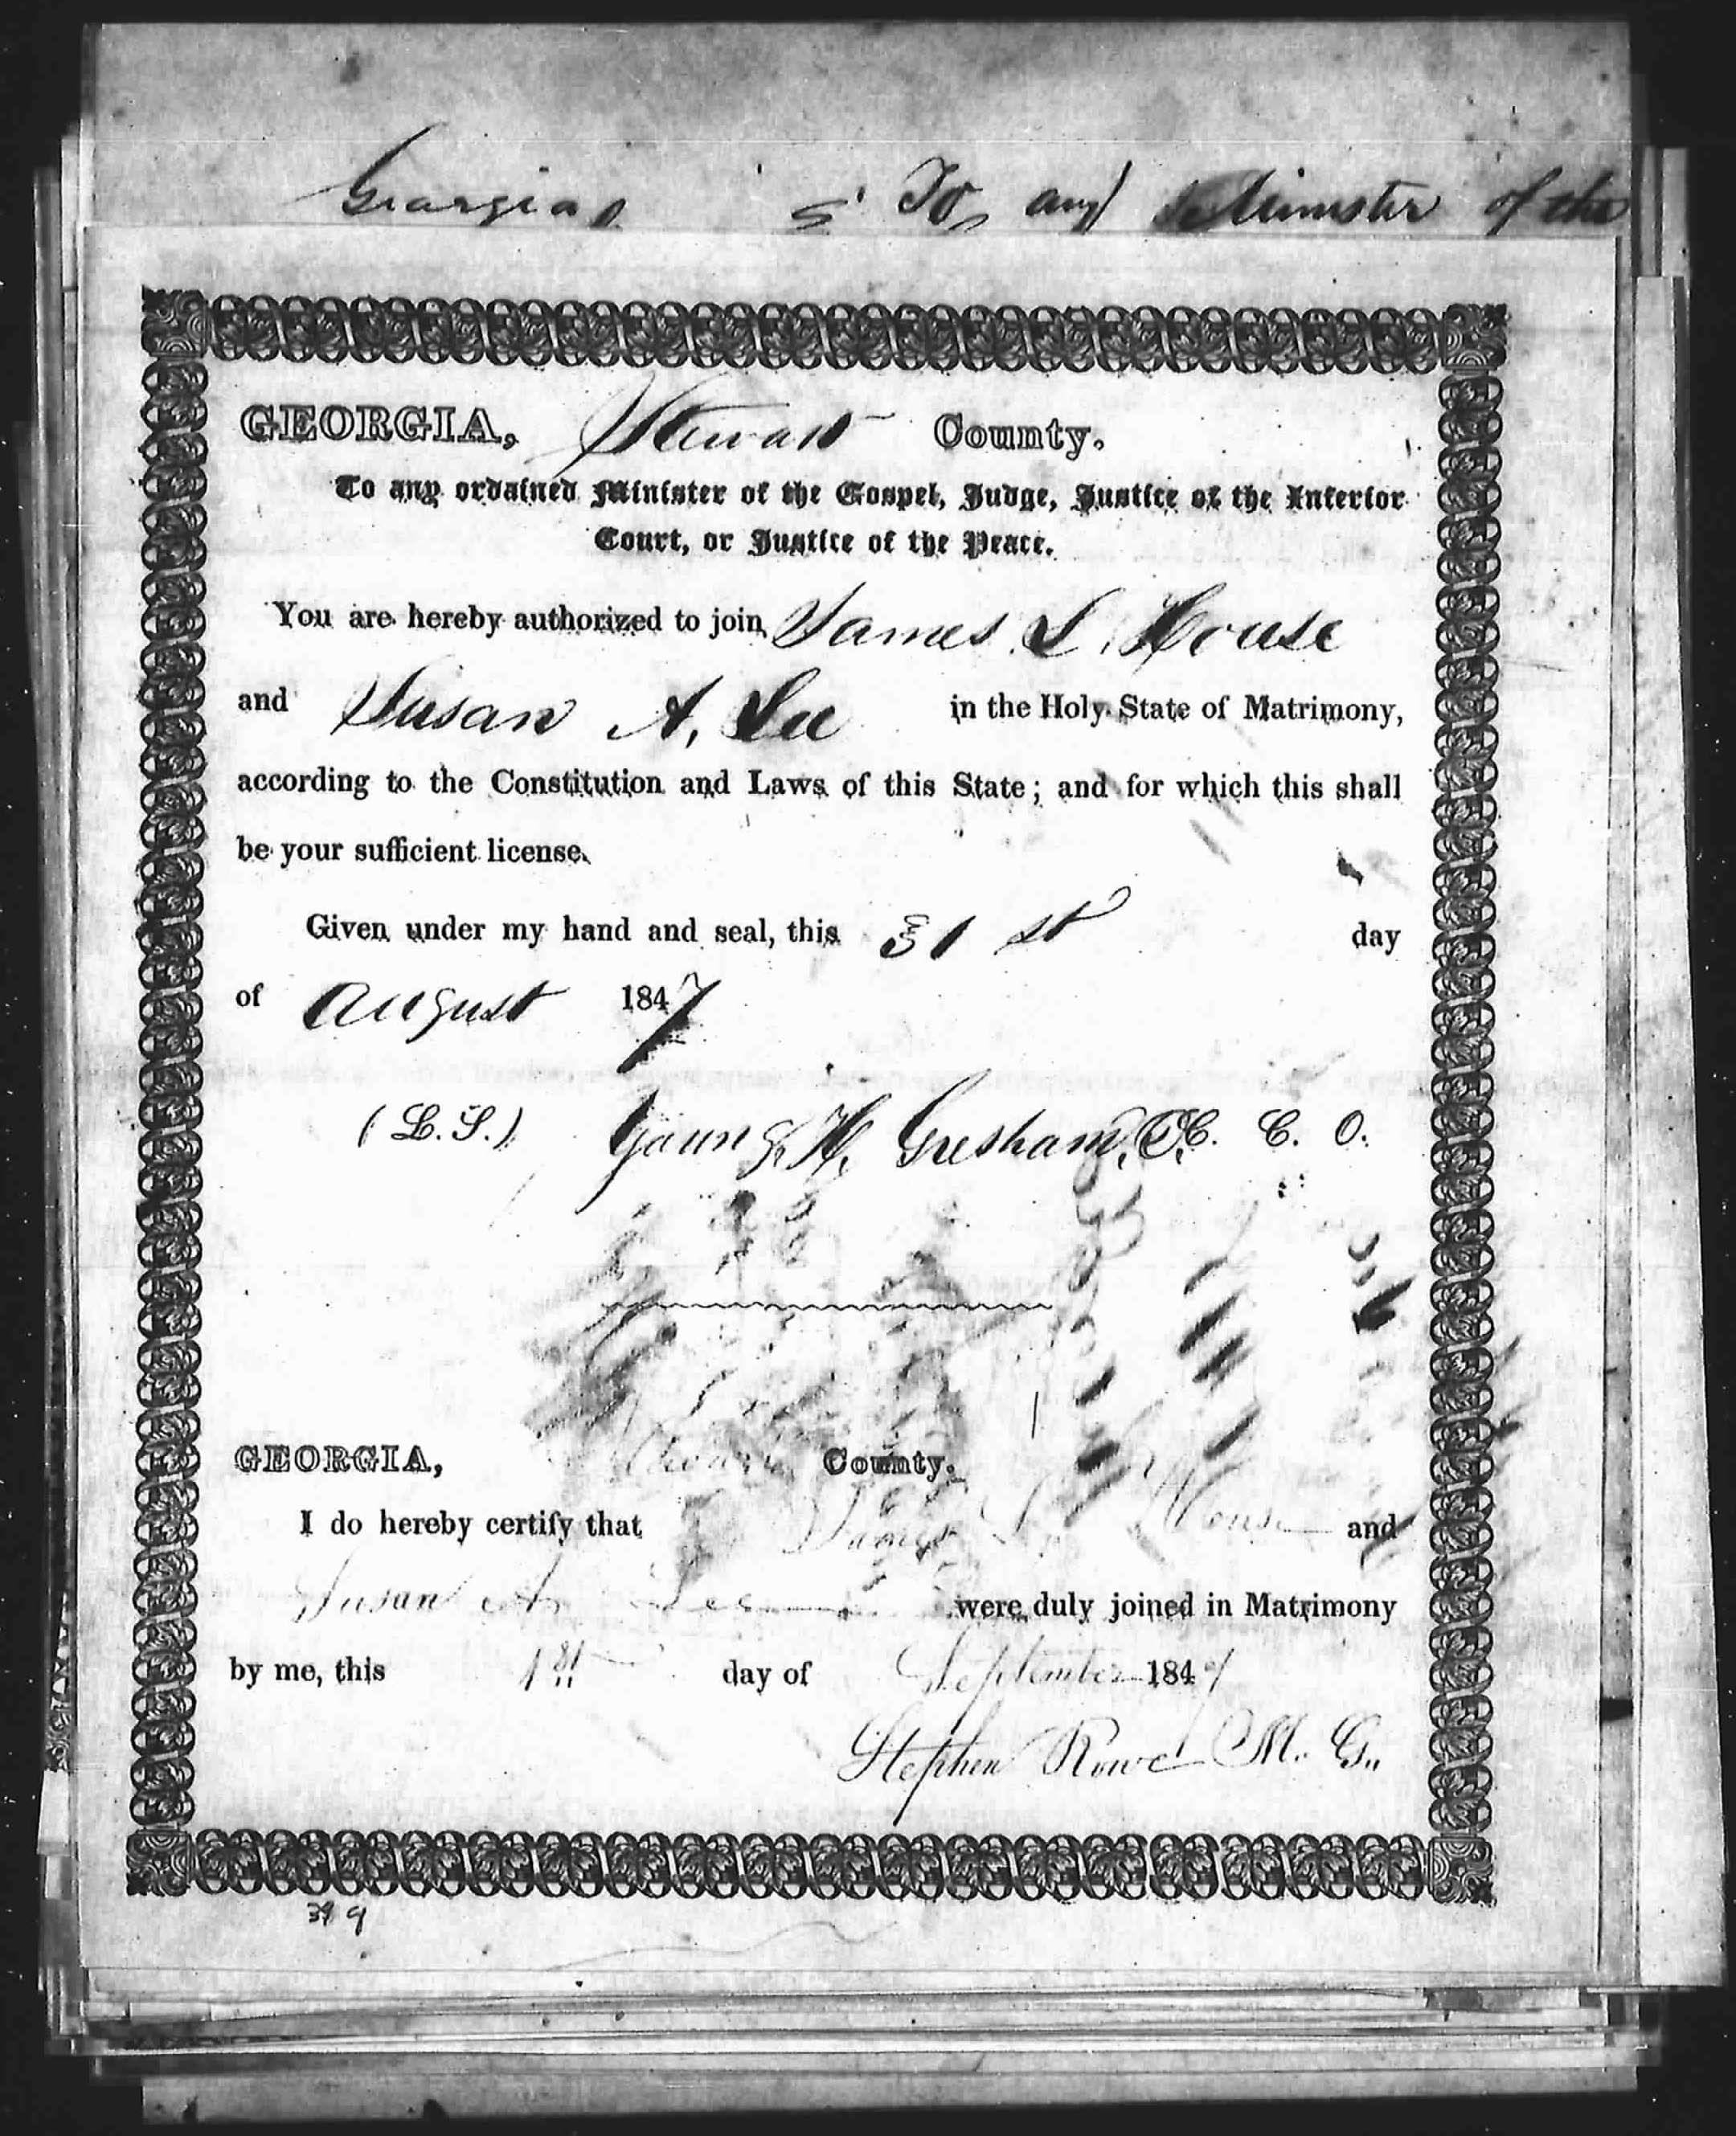 Georgia To any Minister of the
GEORGIA, Stewart County.
To any ordained Minister of the Gospel, Judge, Justice of the Inferior
Court, or Justice of the Peace.
You are hereby authorized to join James L. House
and Susan A. Lee in the Holy State of Matrimony,
according to the Constitution and Laws of this State; and for which this shall
be your sufficient license.
Given under my hand and seal, this 31st day
of August 1847
(L.S.) Young H. Gresham, C. C. O.
GEORGIA, County.
I do hereby certify that James L. House and
Susan A. Lee were duly joined in Matrimony
by me, this 1st day of September 1847
Stephen Rowe M. G.